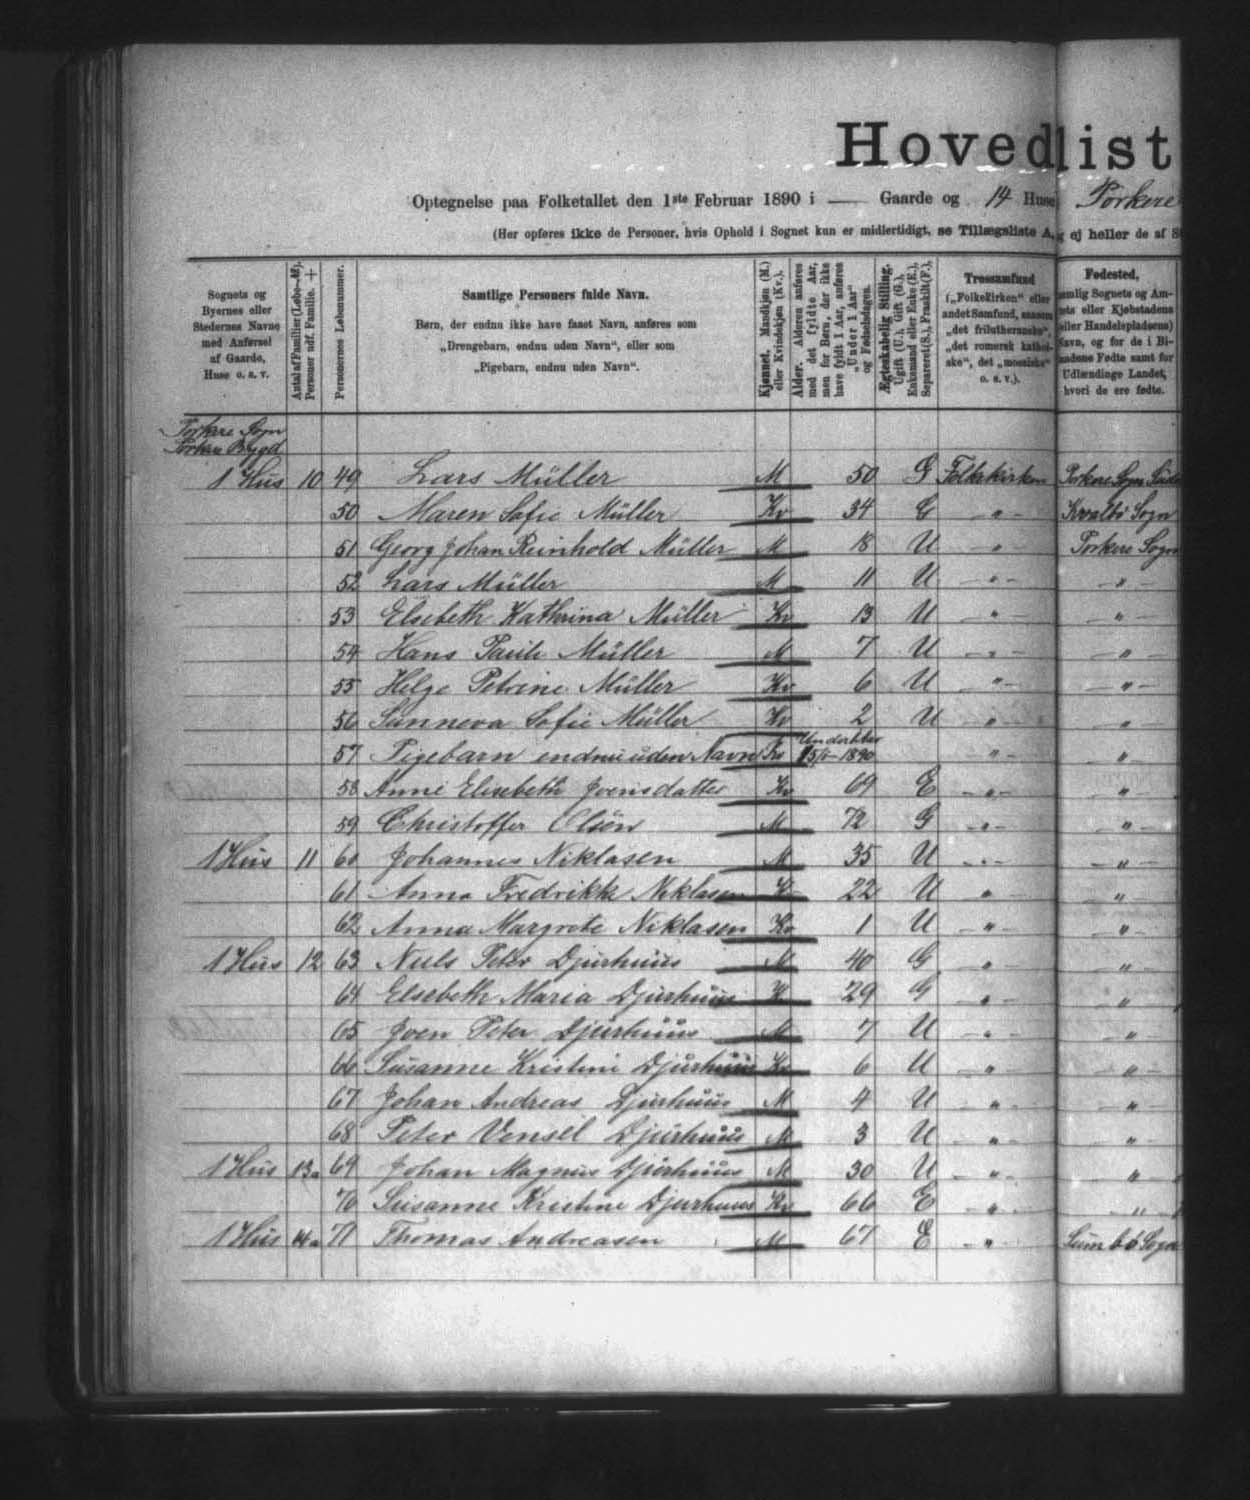 Hovedlist
Optegnelse paa Folketallet den 1ste Februar 1890 i — Gaarde og 14 Huse Porkere
(Her opføres ikke de Personer, hvis Ophold i Sognet kun er midlertidigt, se Tillægsliste A, ej heller de af
Sognets og Byernes eller Stedernes Navne med Anførsel af Gaarde, Huse o. s. v.
Antal af Familier (Løbe-№). Personer udf. Familie. +
Personernes Løbenummer.
Samtlige Personers fulde Navn.
Børn, der endnu ikke have faaet Navn, anføres som
„Drengebarn, endnu uden Navn“, eller som
„Pigebarn, endnu uden Navn“.
Kjønnet. Mandkjøn (M.) eller Kvindekjøn (Kv.).
Alder. Alderen anføres med det fyldte Aar, men for Børn, der ikke have fyldt 1 Aar, anføres „Under 1 Aar“ og Fødselsdagen.
Ægteskabelig Stilling. Ugift (U.), Gift (G.), Enkemand eller Enke (E.), Separeret (S.), Fraskilt (F.).
Trossamfund („Folkekirken“ eller andet Samfund, saasom „det frilutheranske“, „det romersk katholske“, det „mosaiske“ o. s. v.).
Fødested, nemlig Sognets og Amtets eller Kjøbstadens (eller Handelspladsens) Navn, og for de i Bilandene Fødte samt for Udlændinge Landet, hvori de ere fødte.
Porkere Sogn
Porkere Bygd
1 Hus 10 49 Lars Müller M 50 G Folkekirken Porkere Sogn
50 Maren Sofie Müller Kv 34 G " Kvalbø Sogn
51 Georg Johan Reinhold Müller M 18 U " Porkere Sogn
52 Lars Müller M 11 U " "
53 Elsebeth Kathrina Müller Kv 13 U " "
54 Hans Pauli Müller M 7 U " "
55 Helge Petrine Müller Kv 6 U " "
56 Sunneva Sofie Müller Kv 2 U " "
57 Pigebarn endnu uden Navn Kv Under 1 Aar 15/1-1890 " "
58 Anne Elisebeth Joensdatter Kv 69 E " "
59 Christoffer Olsen M 72 G " "
1 Hus 11 60 Johannes Niklasen M 35 U " "
61 Anna Fredrikke Niklasen K 22 U " "
62 Anna Margrete Niklasen Kv 1 U " "
1 Hus 12 63 Niels Peter Djurhuus M 40 G " "
64 Elsebeth Maria Djurhuus K 29 G " "
65 Joen Peter Djurhuus M 7 U " "
66 Susanne Kristine Djurhuus Kv 6 U " "
67 Johan Andreas Djurhuus M 4 U " "
68 Peter Vensil Djurhuus M 3 U " "
1 Hus 13a 69 Johan Magnus Djurhuus M 30 U " "
70 Susanne Kristine Djurhuus Kv 66 E " "
1 Hus 14a 71 Thomas Andreasen M 67 E " Sumbø Sogn